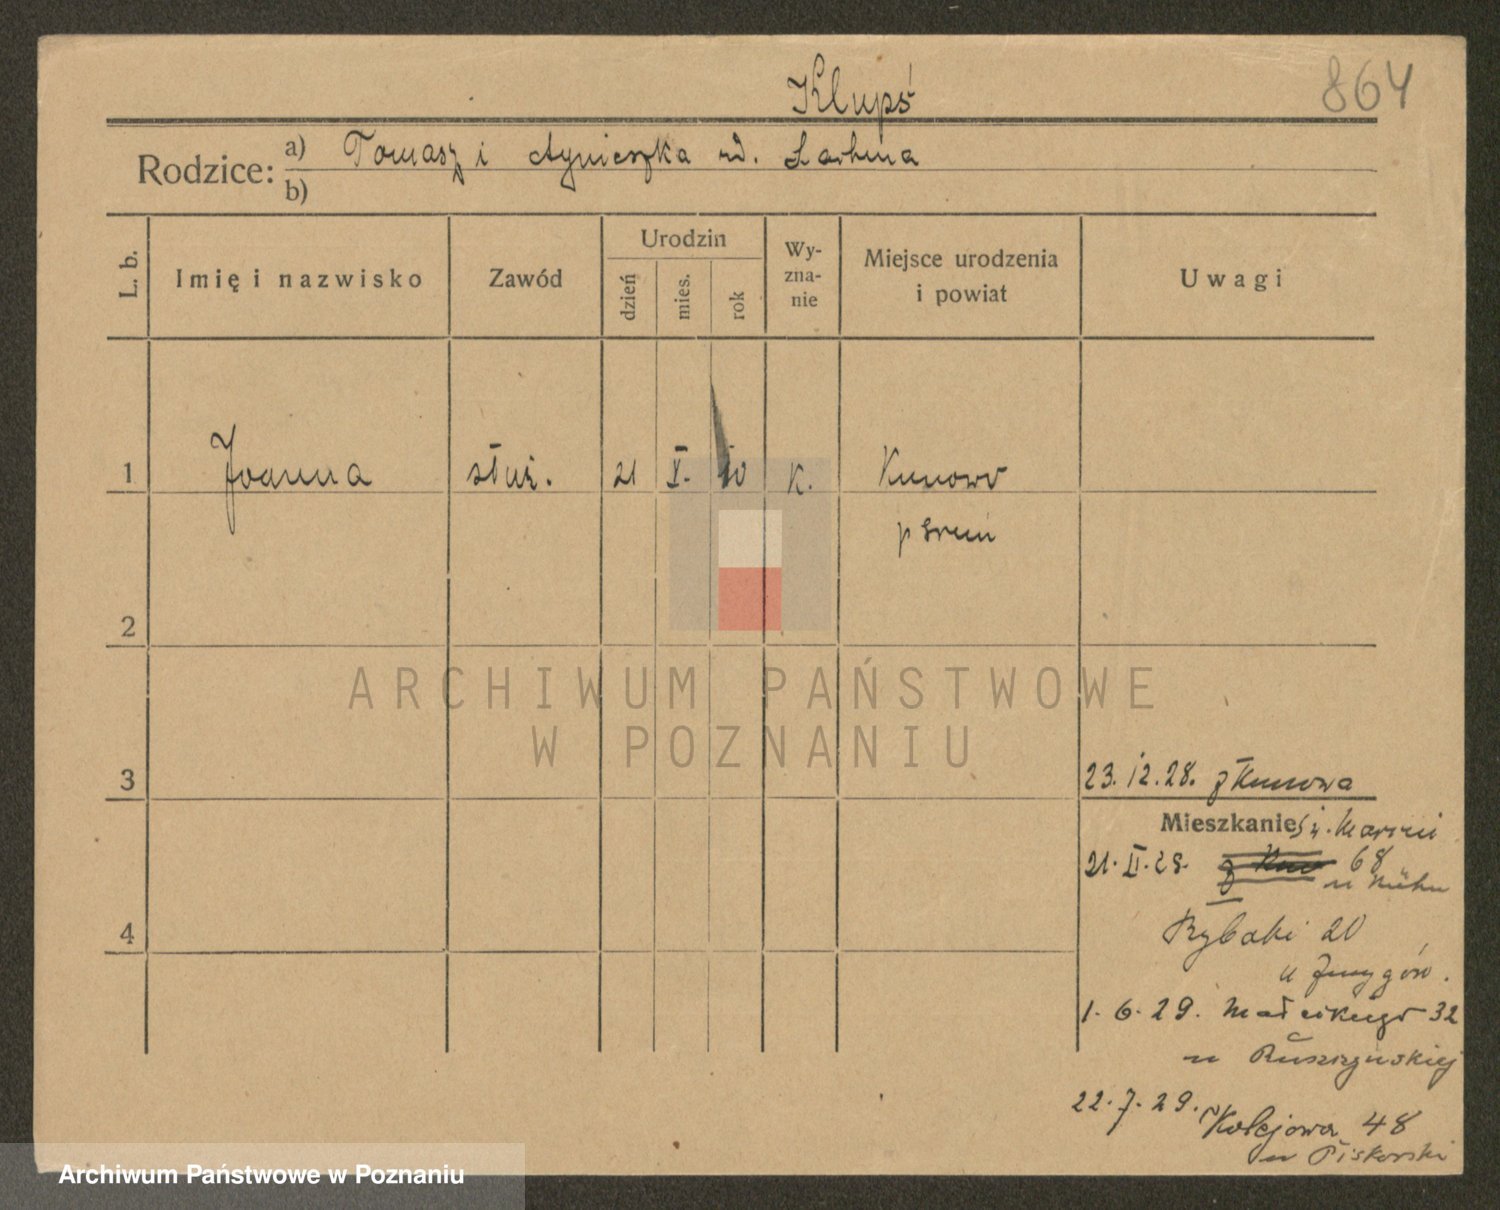 864
Klupś
Rodzice: a) Tomasz i Agnieszka rd.
b)
L. b.
Imię i nazwisko
Zawód
Urodzin
dzień
mies.
rok
Wy-
zna-
nie
Miejsce urodzenia
i powiat
Uwagi
1 Joanna służ. 21 X. 10 K. Kunowo
p Śrem
2
ARCHIWUM PAŃSTWOWE
W POZNANIU
3
23.12.28. z Kunowa
Mieszkanie Św. Marcin
21. II. 28. z Kun 68
u
4
Rybaki 20
u
1. 6. 29. Małeckiego 32
u
22. 7. 29. Kolejowa 48
u Piskorski
Archiwum Państwowe w Poznaniu